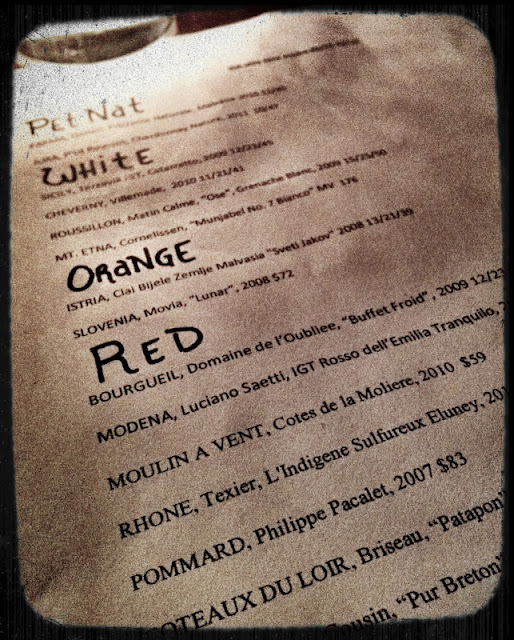 Pet Nat
2011
WHITE
CHEVERNY, Villemade, 2010 11/21/41
ROUSSILLON, Matin Calme, "Ose", Grenache Blanc, 2009 15/25/50
MT. ETNA, Cornelissen, "Munjabel No. 7 Bianco" MV 176
ORANGE
ISTRIA, Clai Bijele Zemlje Malvasia "Sveti Jakov" 2008 13/21/39
SLOVENIA, Movia, "Lunar", 2008 $72
RED
BOURGUEIL, Domaine de l'Oubliee, "Buffet Froid", 2009 12/23
MODENA, Luciano Saetti, IGT Rosso dell'Emilia Tranquilo,
MOULIN A VENT, Cotes de la Moliere, 2010 $59
RHONE, Texier, L'Indigene Sulfureux Eluney, 201
POMMARD, Philippe Pacalet, 2007 $83
OTEAUX DU LOIR, Briseau, "Patapon"
ousin, "Pur Breton"